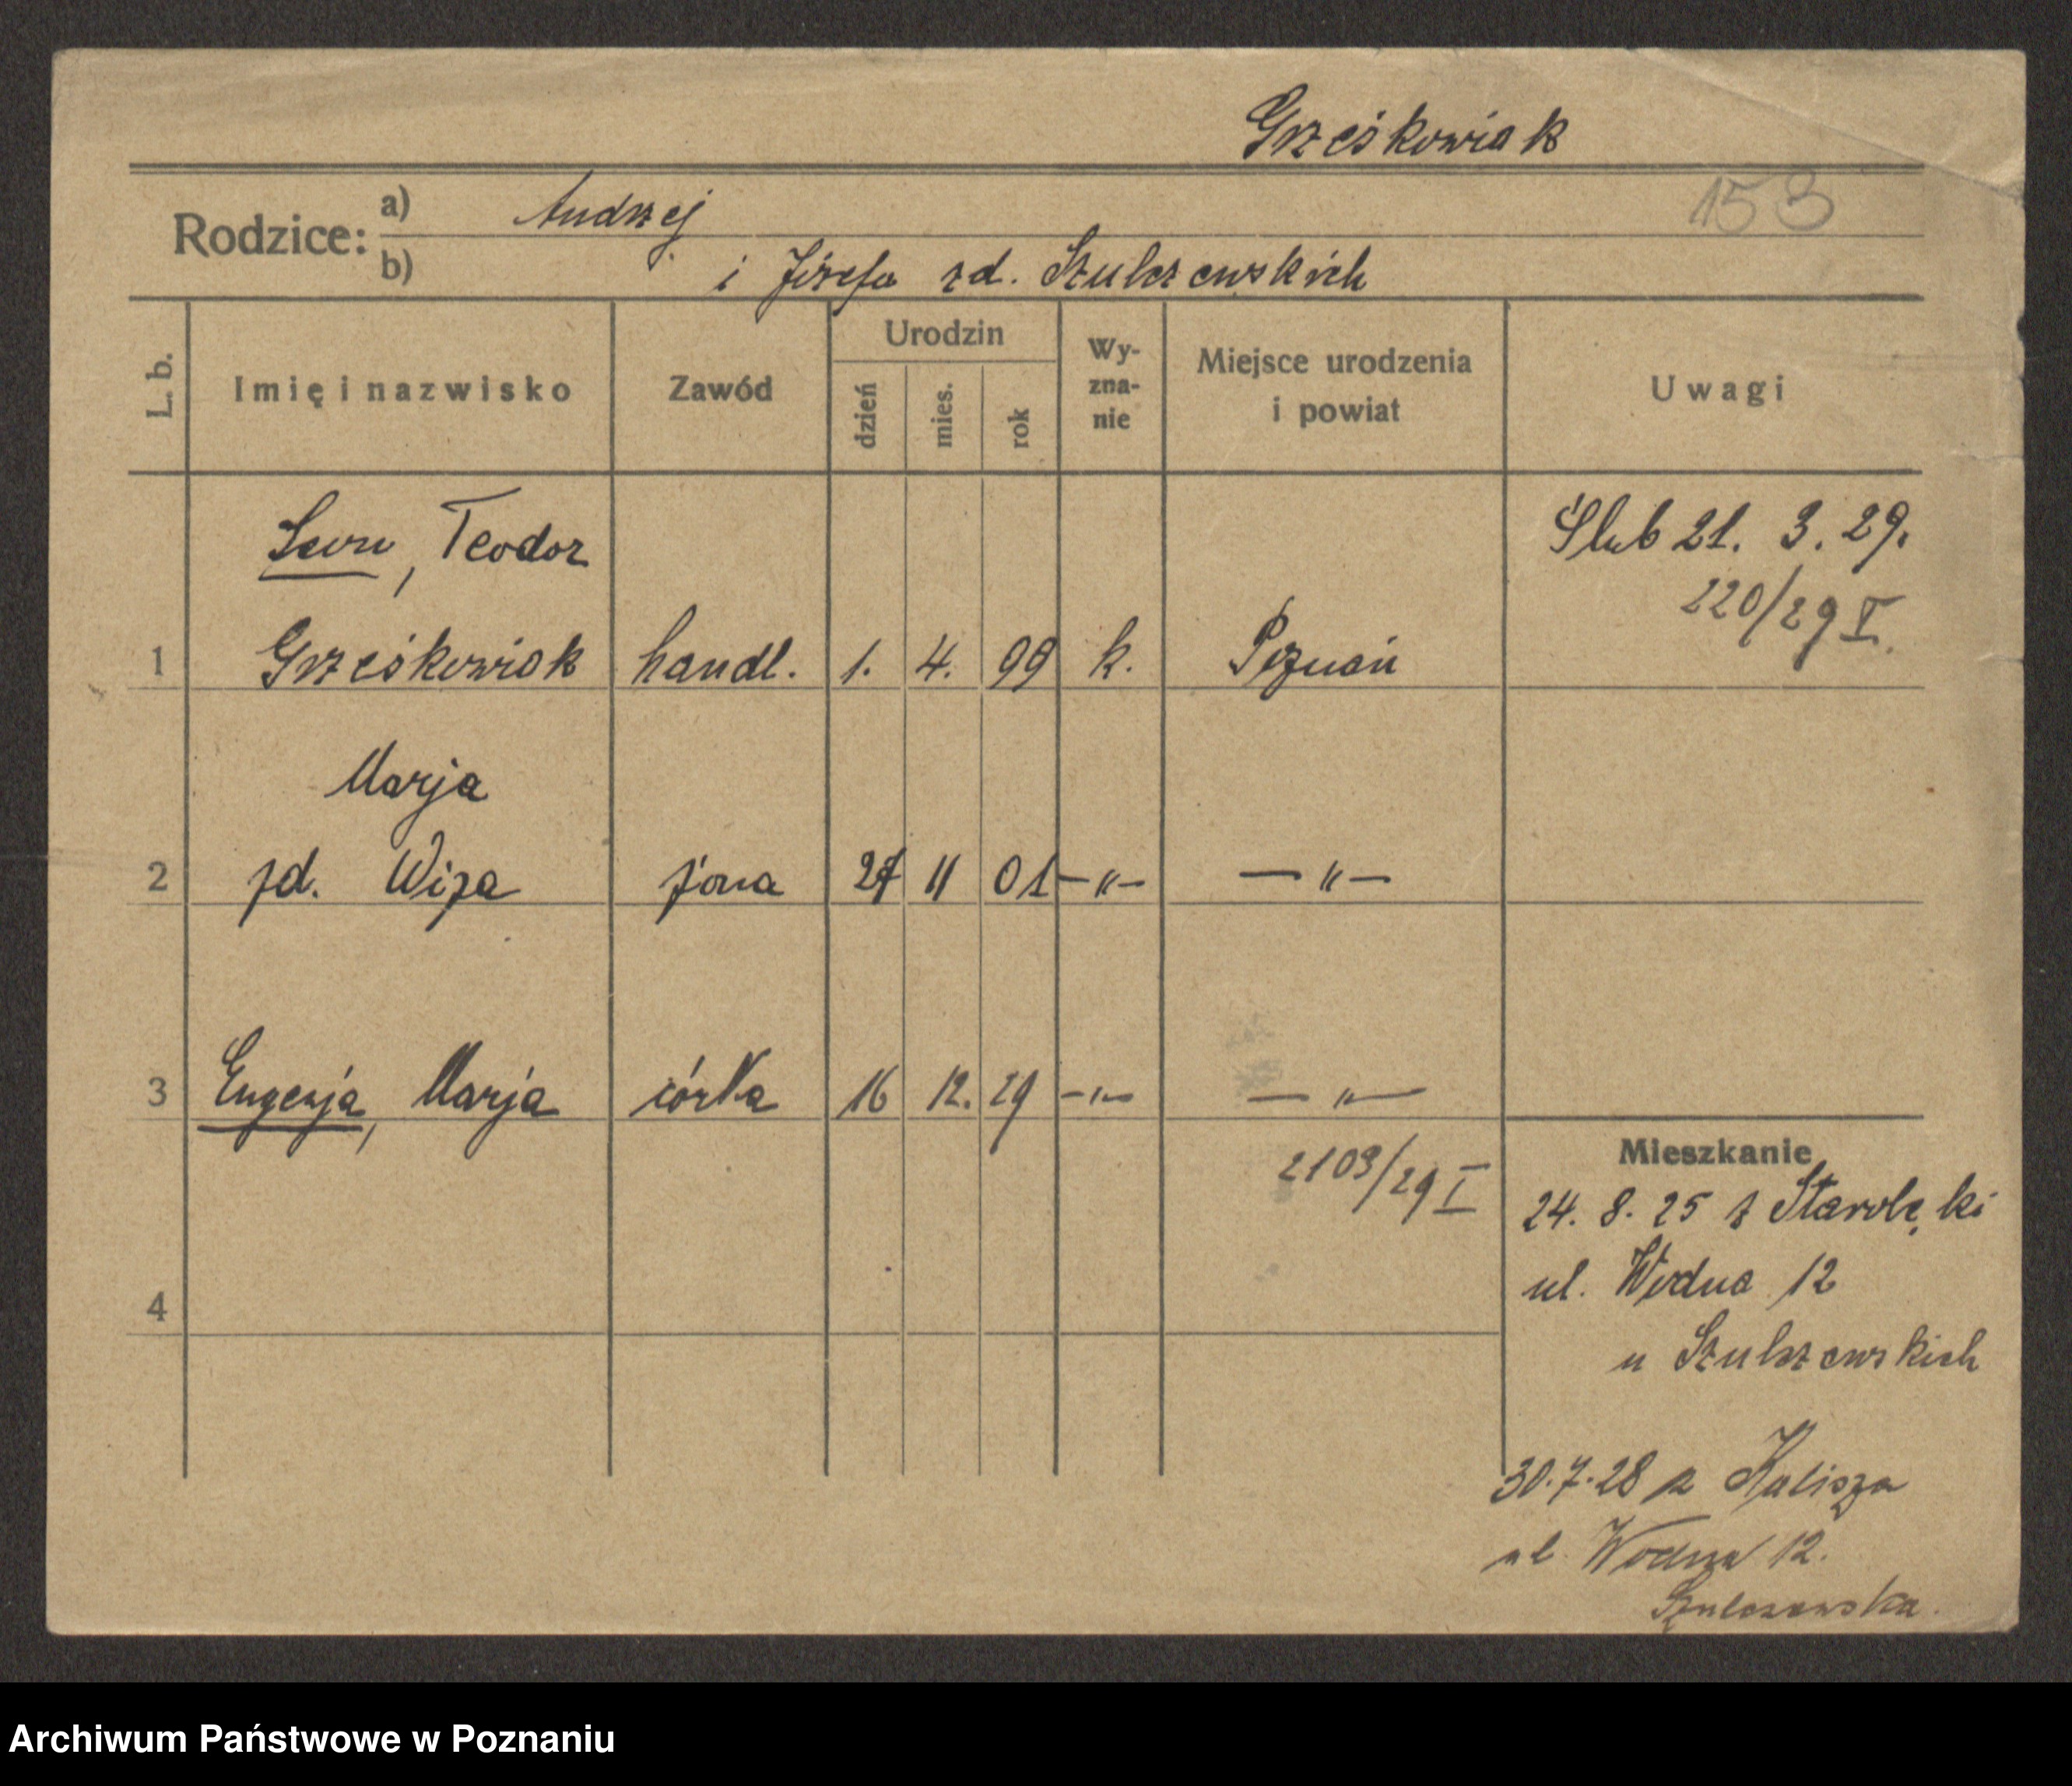 Grześkowiak
153
Rodzice: a) Andrzej
b) i Józefa zd. Szulczewskich
L. b. Imię i nazwisko Zawód Urodzin dzień mies. rok Wy-zna-nie Miejsce urodzenia i powiat Uwagi
Leon, Teodor Ślub 21. 3. 29.
220/29 I.
1 Grześkowiak handl. 1. 4. 99 k. Poznań
Marja
2 zd. Wiza żona 27 11 01 —"— —"—
3 Eugenja, Marja córka 16 12. 29 —"— —"—
2103/29 I
4
Mieszkanie
24. 8. 25 z Starołęki
ul. Wodna 12
u Szulczewskich
30.7.28 z Kalisza
ul. Wodna 12.
Szulczewska.
Archiwum Państwowe w Poznaniu